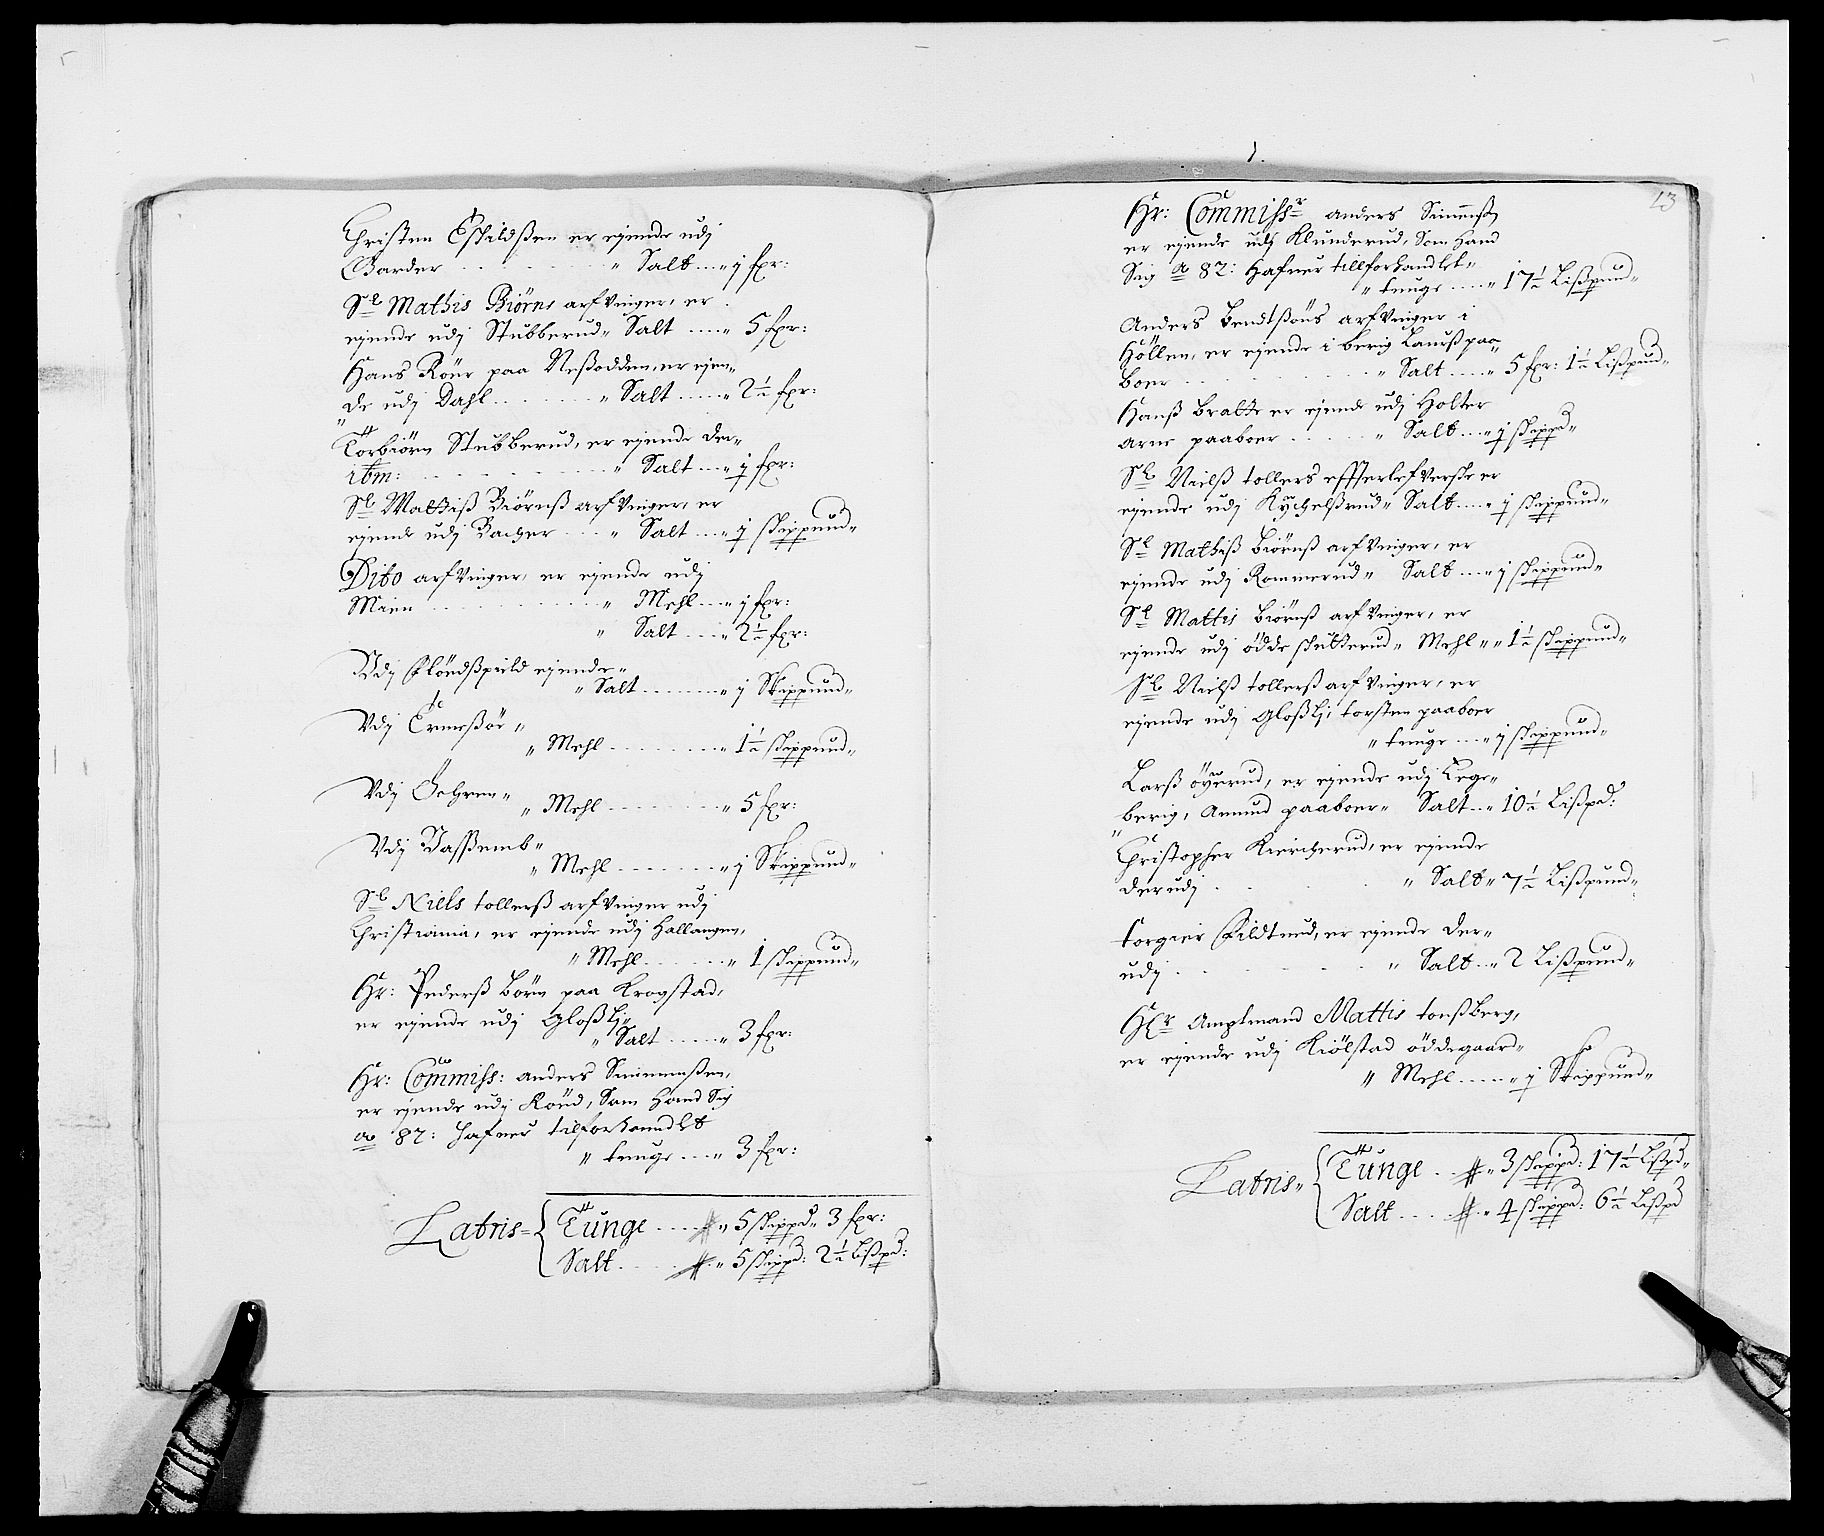 Christen Eskildßen er ejende udj
Garder . . . . . " Salt ... " j fxr:
Sl Mathis Biörns arfvinger, er
ejende udj Stubberud " Salt .... " 5 fxr:
Hans Röer paa Neßodden, er ejen=
de udj Dahl . . . . . " Salt .... " 2½ fxr:
Torbiörn Stubberud, er ejende der=
ibm: . . . . . " Salt ... " j fxr:
Sl Mattiß Biörnß arfvinger, er
ejende udj Bacher . . . " Salt ... " j skippund "
Dito arfvinger, er ejende udj
Mien . . . . . " Mehl ... " j fxr:
" Salt .... " 2½ fxr:
Udj ejende "
" Salt ........ " j Skippund "
Vdj "
" Mehl ........ " 1½ skippund "
Vdj "
" Mehl ........ " 5 fxr:
Vdj "
" Mehl ........ " j Skippund "
Sl Niels tollerß arfvinger udj
Christiania, er ejende udj Hallangen,
" Mehl ...... " 1 skippund "
Hr: Pederß börn paa Krogstad,
er ejende udj Gloßlj "
" Salt ..... " 3 fxr:
Hr: Commiss: anders Simmenßen,
er ejende udj Röud, Som Hand Sig
ao 87: Hafuer tilforhandlet
" tunge ... " 3 fxr:
Latris = { Tunge .... " 5 skippd " 3 fxr:
Salt . . . . " 5 skippd: 2½ Lißpd:
13
Hr: Commissr anders Simenß
er ejende udj Klunderud, Som Hand
Sig ao 87: Hafuer tillforhandlet "
" tunge .... " 17½ Lißpund "
Anders Bendtßöns arfvinger i
Höllen, er ejende i berig Laurß paa=
boer . . . . . " Salt .... " 5 fxr: 1½ Lißpund "
Hanß Bratte er ejende udj Holter
Arne paaboer . . . . " Salt ... " j skippd "
Sl Nielß tollers effterlefverske er
ejende udj Kychelßrud " Salt .... " j skippund "
Sl Mathiß Biörnß arfvinger, er
ejende udj Rommerud " Salt .... " j skippund "
Sl Mattis Biörnß arfvinger, er
ejende udj ödde skutterud " Mehl " " 1½ skippund "
Sl Nielß tollerß arfvinger, er
ejende udj Gloßlj, torsten paaboer
" tunge .... " j skippund "
Larß öyerud, er ejende udj Tege=
berig, Amund paaboer " Salt .. " 10½ Lißpd:
Christopher Kiercherud, er ejende
derudj . . . . . " Salt " 7½ Lißpund "
torgier Fildtued, er ejende der=
udj . . . . . " Salt .. " 2 Lißpund "
Hr Amptmand Mattis tonßberg,
er ejende udj Kiölstad öddegaar "
" Mehl ..... " j Skippund "
Latris " { Tunge . . " 3 skippd: 17½ Lißpd "
Salt .... " 4 skippd: 6½ Lißpd